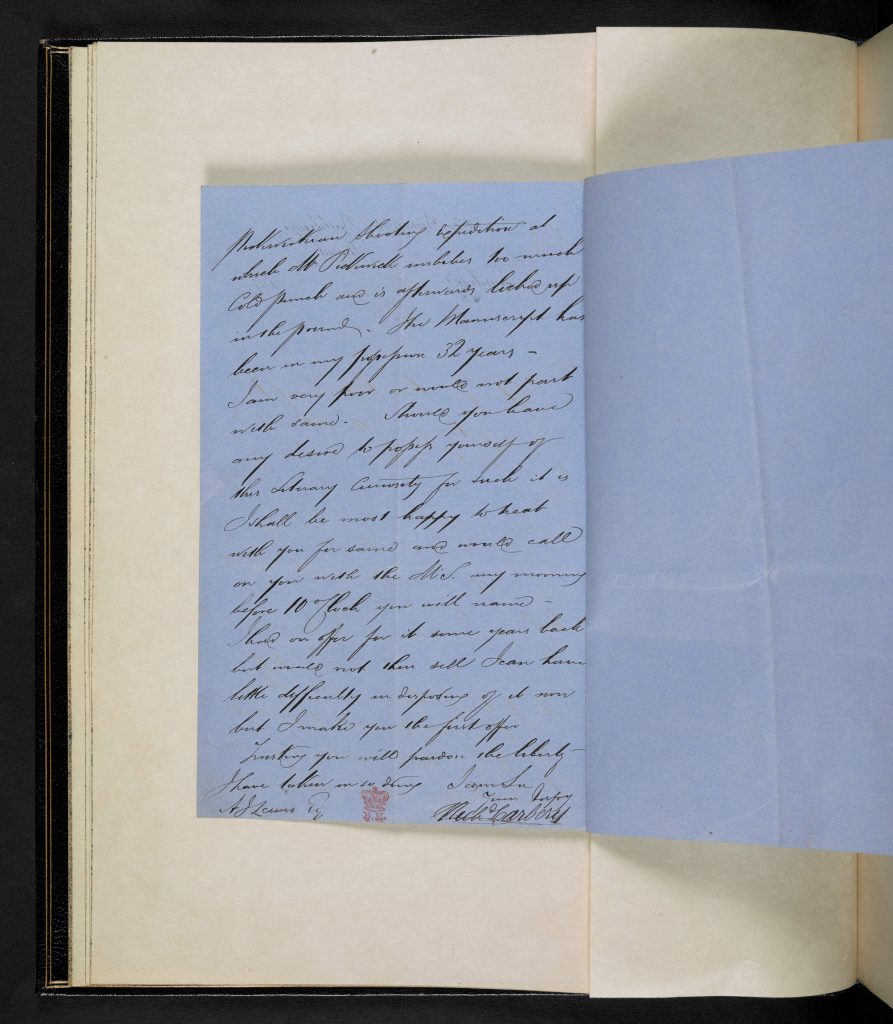 Pickwickian Shooting Expedition at
which Mr Pickwick imbibes too much
Cold Punch and is afterwards locked up
in the pound. The Manuscript has
been in my possession 32 years –
I am very poor or would not part
with same. Should you have
any desire to possess yourself of
this Literary Curiosity for such it is
I shall be most happy to treat
with you for same and would call
on you with the M.S. any morning
before 10 o'Clock you will name –
I had an offer for it some years back
but would not then sell I can have
little difficulty in disposing of it now
but I make you the first offer
Trusting you will pardon the liberty
I have taken in so doing I am Sir
Yours
A J Lewis Esq Richd Carbery